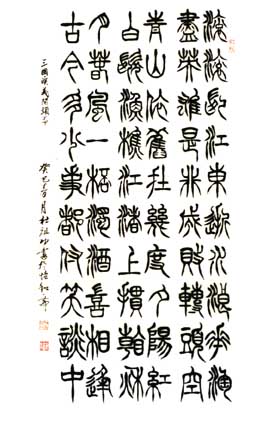 滾滾長江東逝水浪花淘
盡英雄是非成敗轉頭空
青山依舊在幾度夕陽紅
白髮漁樵江渚上慣看秋
月春風一桮濁酒喜相逢
古今多少事都付笑談中
三國演義開頭詞
癸巳月杜祖書於齋